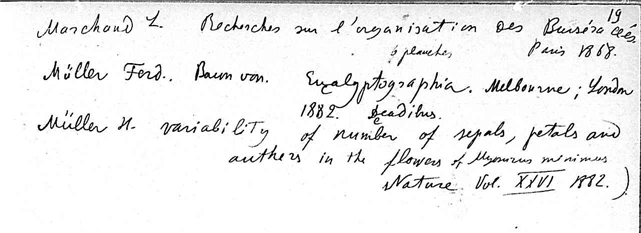 19
Marchand L. Recherches sur l'organisation des Burséracées
6 planches Paris 1868.
Müller Ferd.. Baron von. Eucalyptographia. Melbourne; London
1882. Decadibus.
Müller H. variability of number of sepals, petals and
anthers in the flowers of Myosurus minimus
Nature Vol. XXVI 1882.)